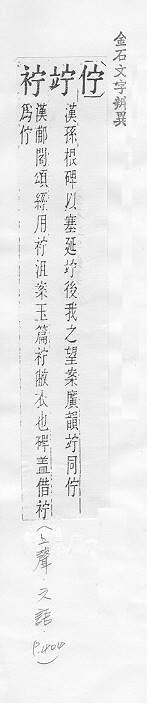 金石文字辨異
佇竚䘢
漢孫根碑以塞延竚後我之望案廣韻竚同佇
漢郙閣頌經用䘢沮案玉篇䘢敝衣也碑盖借䘢
爲佇
(上聲·六語·P.404)